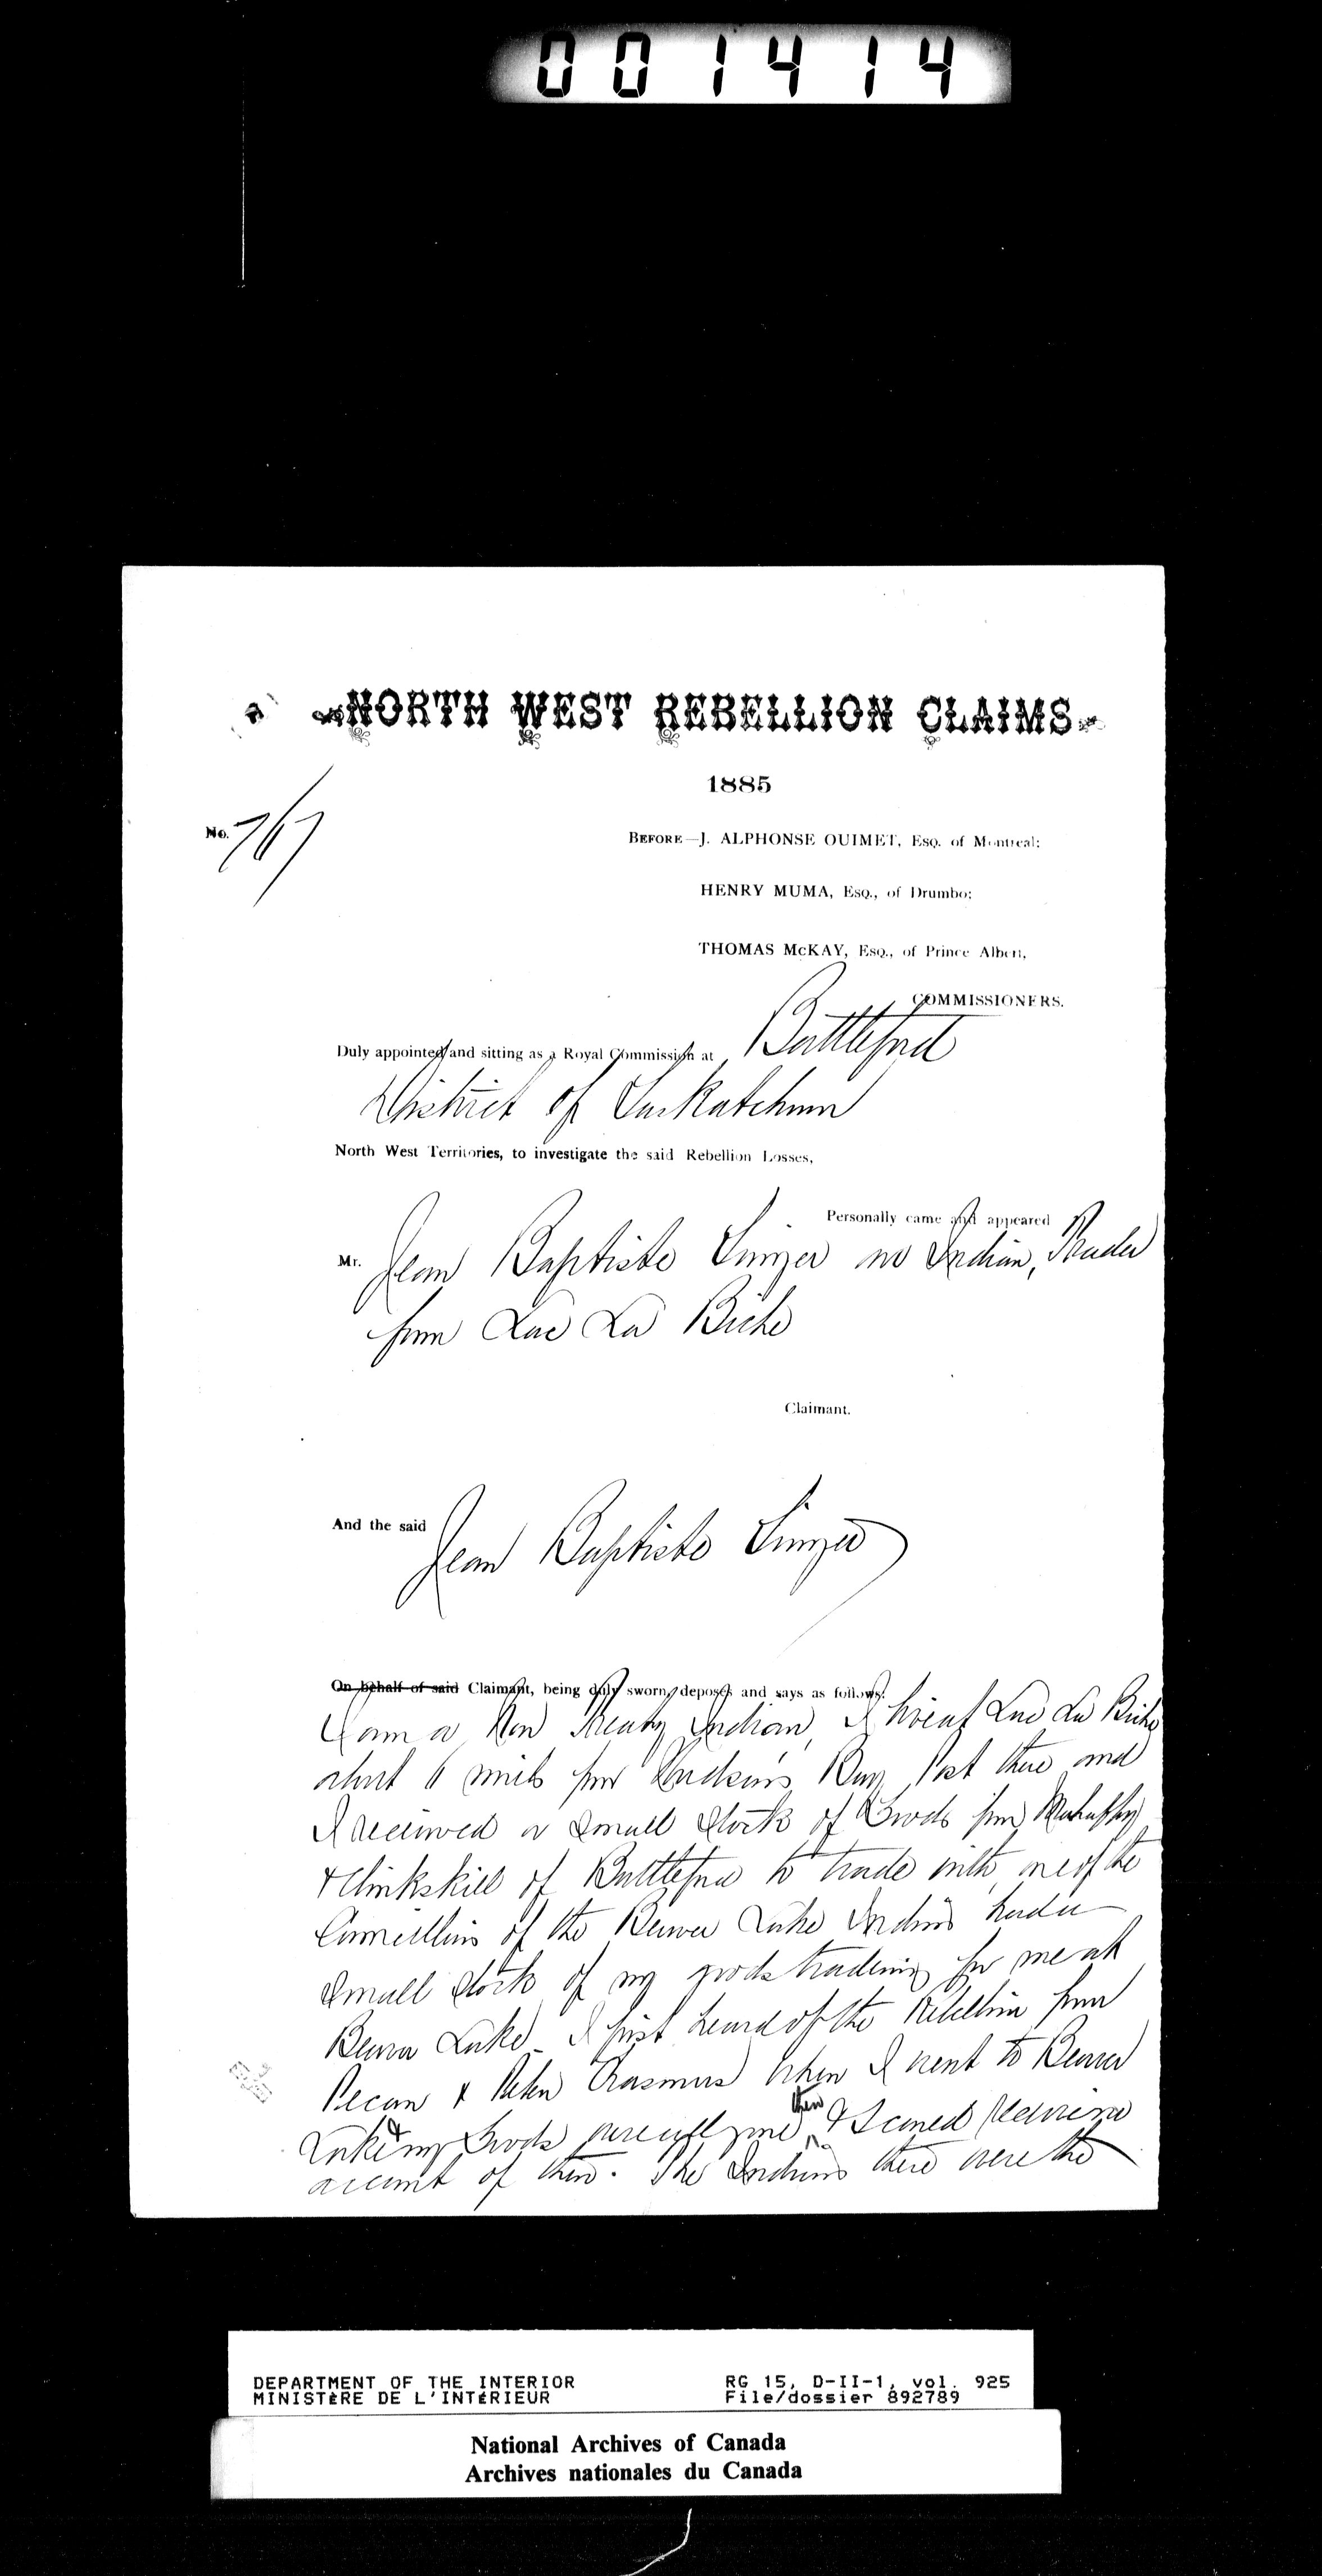 001414
NORTH WEST REBELLION CLAIMS
1885
No. 767
BEFORE—J. ALPHONSE OUIMET, Esq. of Montreal;
HENRY MUMA, Esq., of Drumbo;
THOMAS McKAY, Esq., of Prince Albert,
COMMISSIONERS.
Duly appointed and sitting as a Royal Commission at Battleford
District of Saskatchewan
North West Territories, to investigate the said Rebellion Losses,
Personally came and appeared
Mr. Jean Baptiste an Indian, Trader
from Lac La Biche
Claimant.
And the said Jean Baptiste
On behalf of said Claimant, being duly sworn, deposes and says as follows:
I am a Non Treaty Indian, I live at Lac La Biche
about 6 miles from Hudson's Bay Post there and
I received a small stock of Goods from Mahaffy
& Clinkskill of Battleford to trade with, one of the
Councillors of the Beaver Lake Indians had a
small stock of my goods trading for me at
Beaver Lake I first heard of the Rebellion from
Pecan & Peter Erasmus when I went to Beaver
Lake & my Goods were all gone then & I never
account of them. The Indians there were the
DEPARTMENT OF THE INTERIOR
MINISTÈRE DE L'INTÉRIEUR
RG 15, D-II-1, vol. 925
File/dossier 892789
National Archives of Canada
Archives nationales du Canada